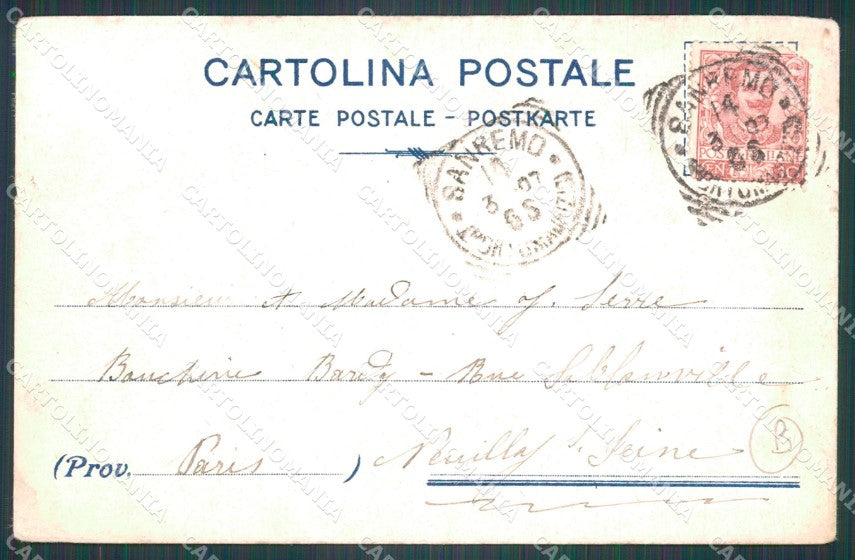 CARTOLINA POSTALE
CARTE POSTALE - POSTKARTE
SANREMO
14
3 07
6 S
(PORTO MAURIZIO)
SANREMO
14
3 07
6 S
POSTE ITALIANE
Monsieur & Madame J. Serre
Boucherie Bardy - Rue
(Prov. Paris ) Neuilly s/ Seine
B
CARTOLINOMANIA